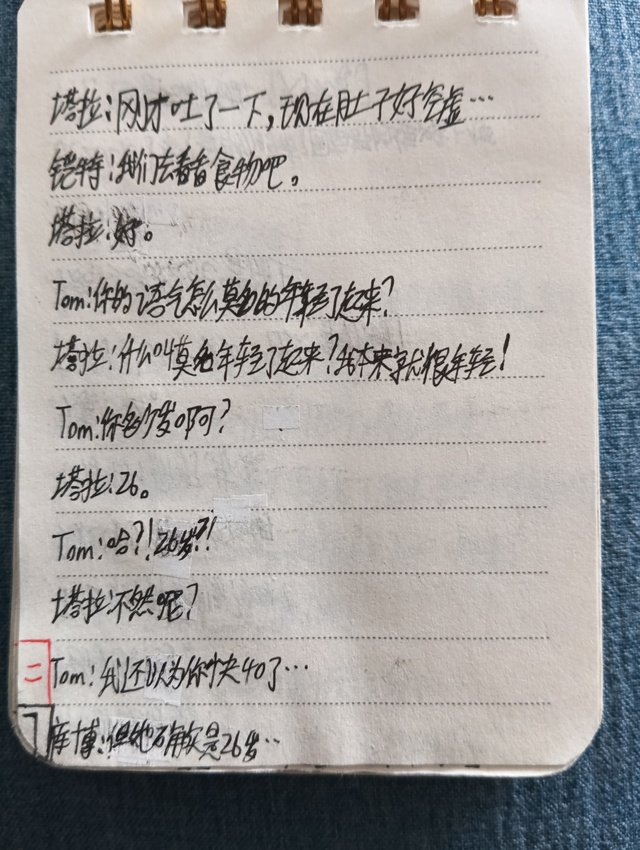 塔拉:刚才吐了一下,现在肚子好空虚…
铠特:我们去看看食物吧。
塔拉:好。
Tom:你的语气怎么莫名的年轻了起来?
塔拉:什么叫莫名年轻了起来?我本来就很年轻!
Tom:你多少岁啊?
塔拉:26。
Tom:哈?!26岁?!
塔拉:不然呢?
二
Tom:我还以为你快40了…
库博:但她确实是26岁…